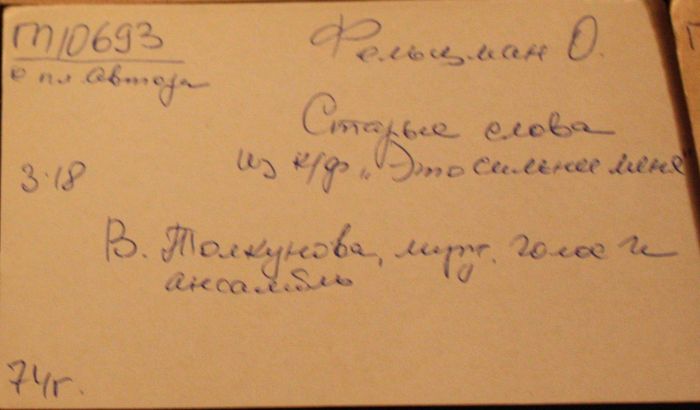 М10693
с пл автора
Фельцман О.
Старые слова
из к/ф "Это сильнее меня
3-18
В. Толкунова, муж. голос и
ансамбль
74г.